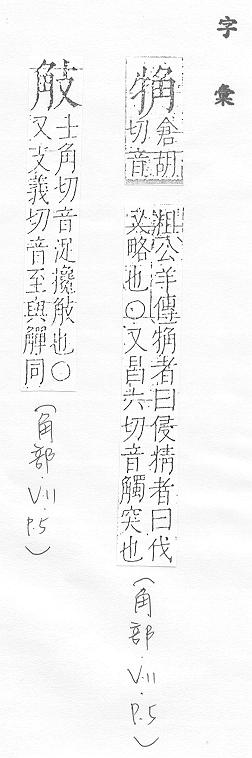 字彙
觕
倉胡
切音
粗公羊傳觕者曰侵精者曰伐
略也○又昌六切音觸突也
(角部.V.11.P.5)
士角切音浞攙也○
又支義切音至與觶同
(角部.V.11.P.5)